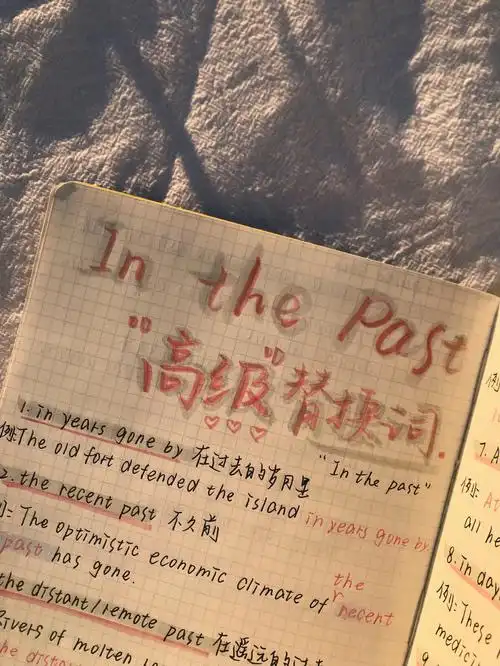 In the Past
"高级"替换词.
"In the past"
1. in years gone by 在过去的岁月里
例:The old fort defended the island in years gone by.
2. the recent past 不久前
例: The optimistic economic climate of the recent
past has gone.
the distant/remote past 在遥远的过去
Rivers of molten
the distant
例:
7. A
例: At
all he
8. in day
例: These
medici
9.